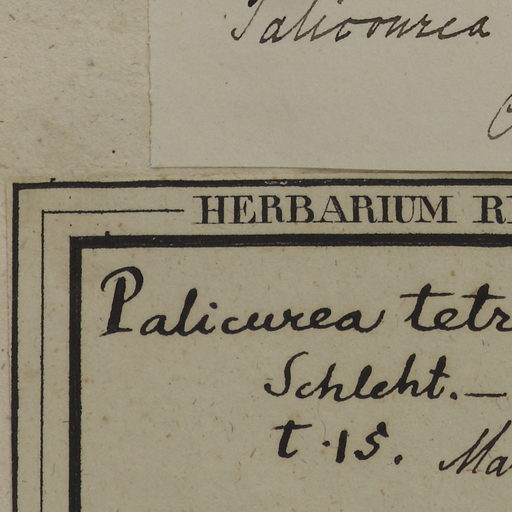 Palicourea
HERBARIUM
Palicurea tetr
Schlcht. —
t. 15. Ma